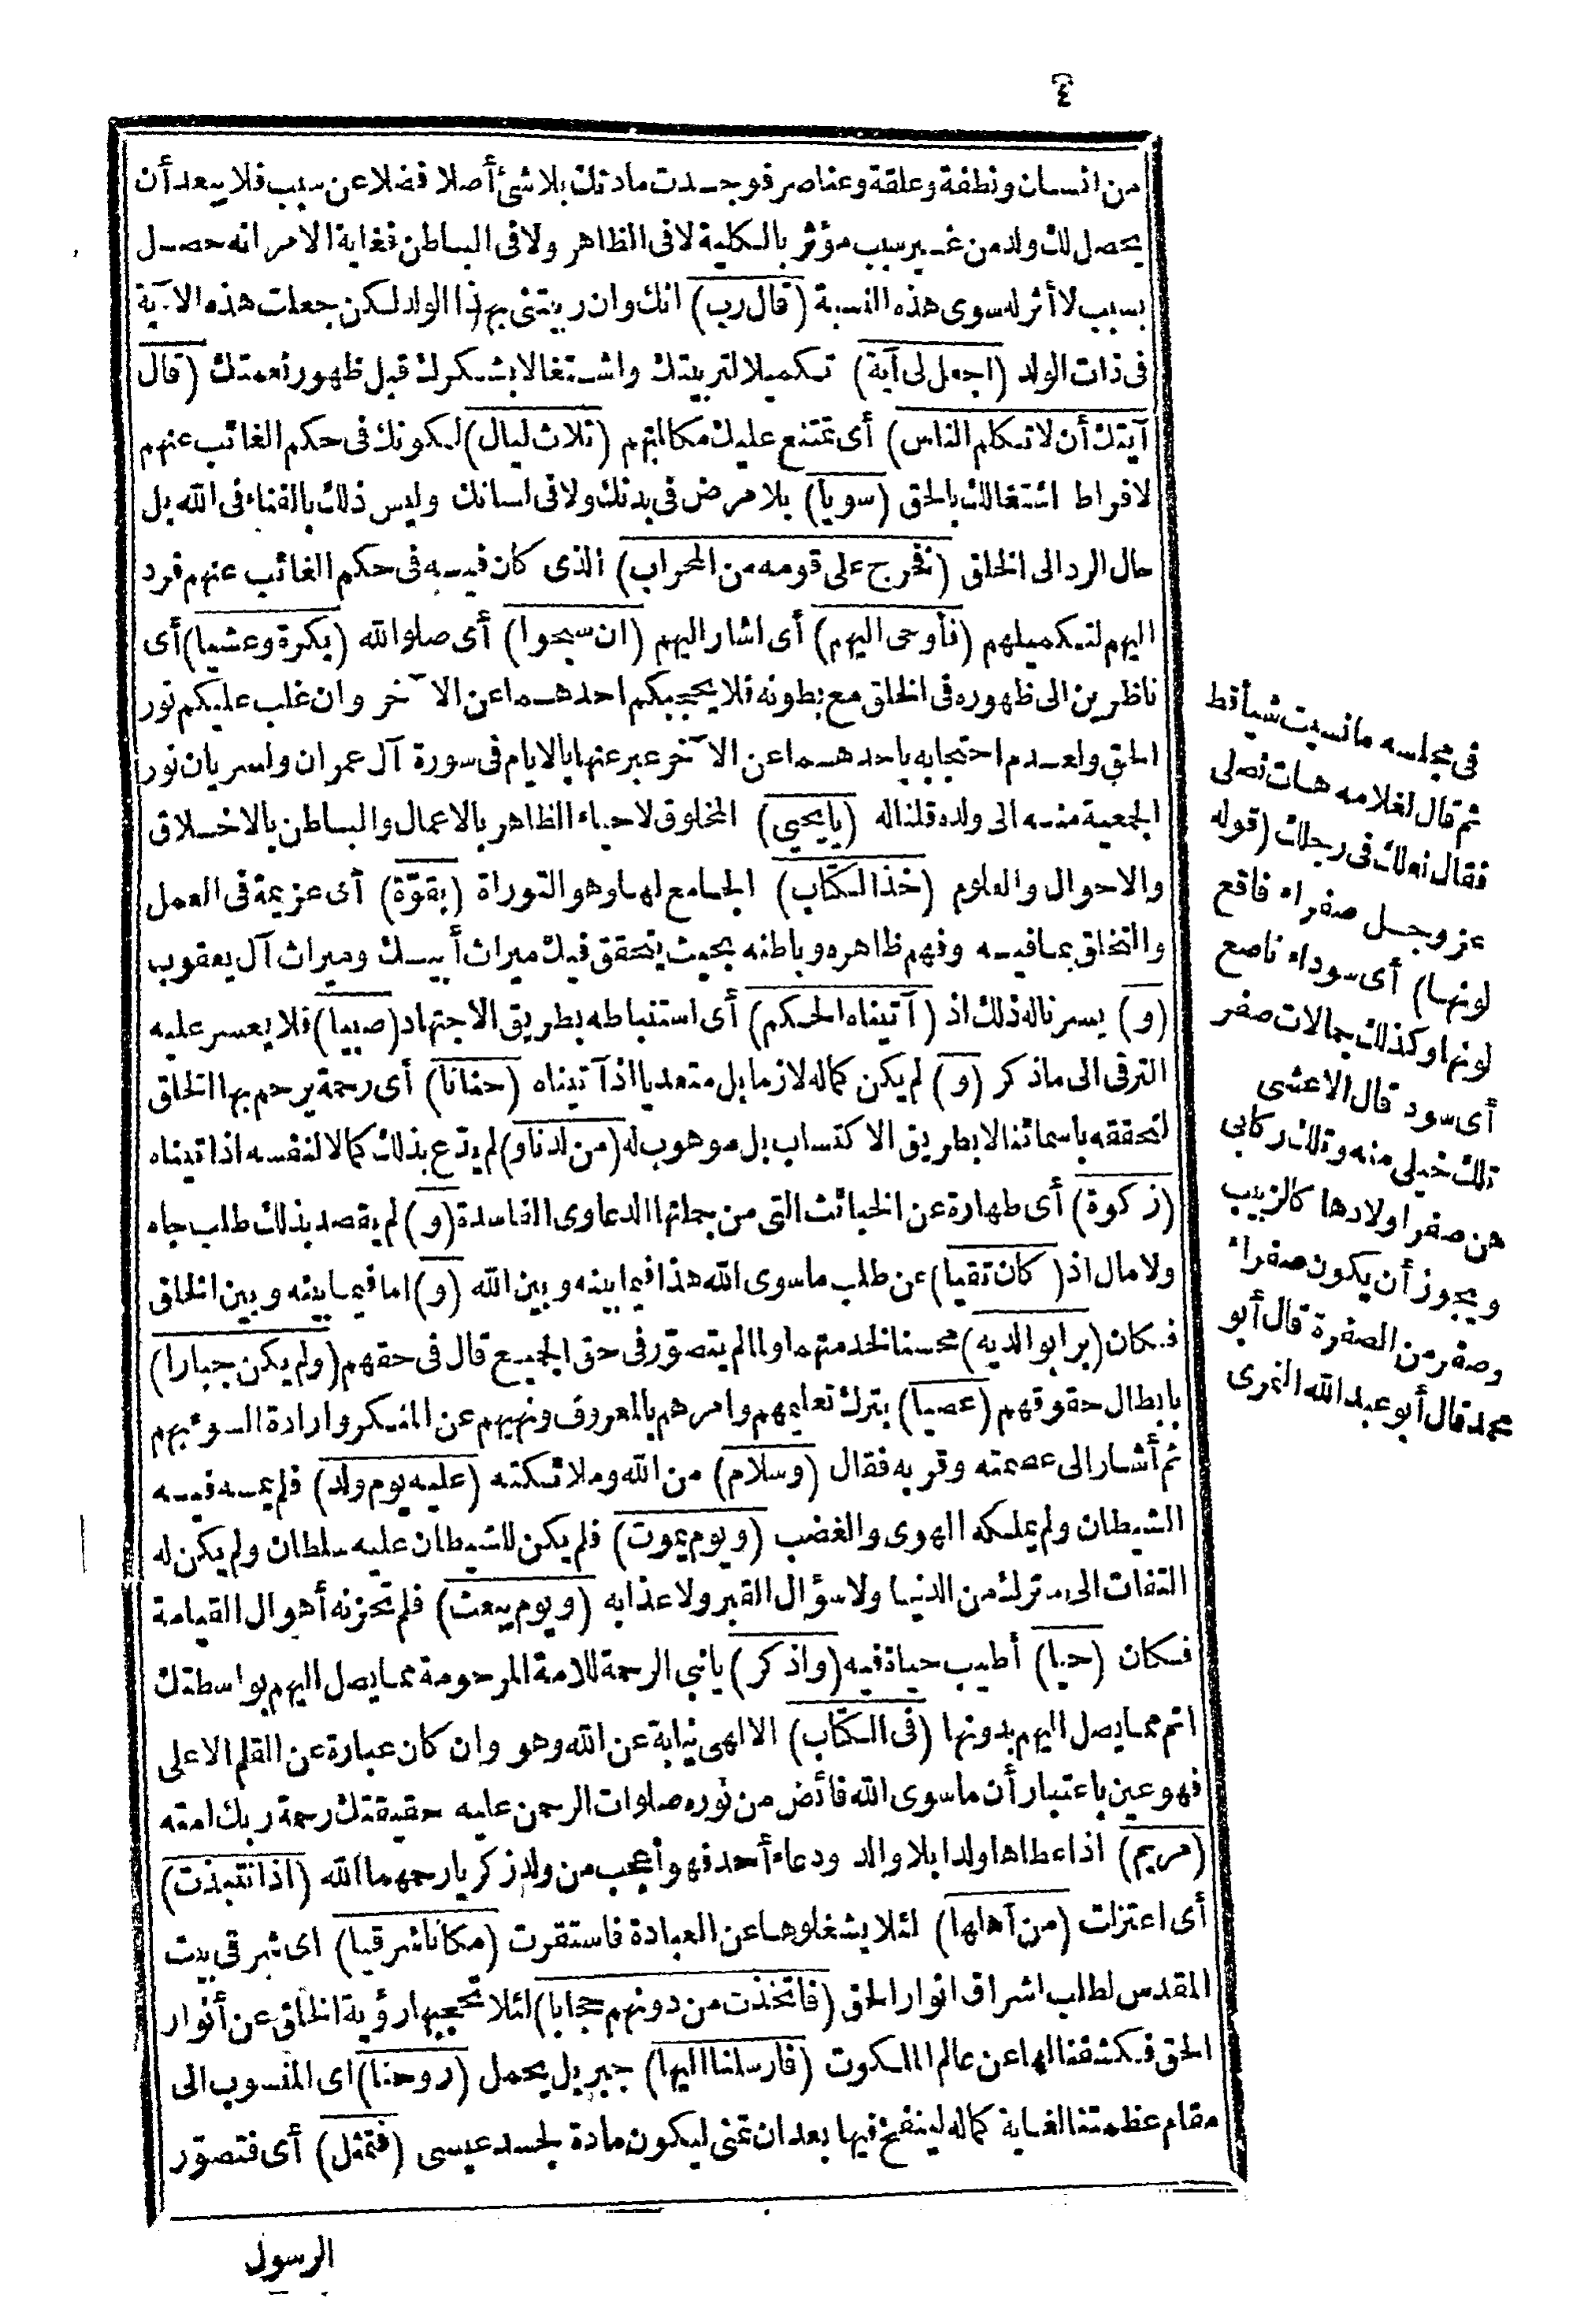 ٤
من انسان ونطفة وعلقة وعناصر فوجدت مادتك بلا شئ أصلا فضلا عن سبب فلا يبعد أن
يحصل لك ولد من غير سبب مؤثر بالكلية لا فى الظاهر ولا فى الباطن فغاية الامر انه حصل
بسبب لا أثر له سوى هذه النسبة (قال رب) انك وان ربيتنى بهذا الولد لكن جعلت هذه الآية
فى ذات الولد (اجعل لى آية) تكميلا لتربيتك واشتغالا بشكرك قبل ظهور نعمتك (قال
آيتك أن لا تكلم الناس) أى تمتنع عليك مكالمتهم (ثلاث ليال) لكونك فى حكم الغائب عنهم
لافراط اشتغالك بالحق (سويا) بلا مرض فى بدنك ولا فى لسانك وليس ذلك بالفناء فى الله بل
حال الرد الى الخلق (فخرج على قومه من المحراب) الذى كان فيه فى حكم الغائب عنهم فرد
اليهم لتكميلهم (فأوحى اليهم) أى اشار اليهم (ان سبحوا) أى صلوا لله (بكرة وعشيا) أى
ناظرين الى ظهوره فى الخلق مع بطونه فلا يحجبكم احدهما عن الآخر وان غلب عليكم نور
الحق ولعدم احتجابه باحدهما عن الآخر عبر عنها بالايام فى سورة آل عمران ولسريان نور
الجمعية منه الى ولده قلنا له (يا يحيى) المخلوق لاحياء الظاهر بالاعمال والباطن بالاخلاق
والاحوال والعلوم (خذ الكتاب) الجامع لها وهو التوراة (بقوّة) أى عزيمة فى العمل
والتخلق بما فيه وفهم ظاهره وباطنه بحيث يتحقق فيك ميراث أبيك وميراث آل يعقوب
(و) يسرنا له ذلك اذ (آتيناه الحكم) أى استنباطه بطريق الاجتهاد (صبيا) فلا يعسر عليه
الترقى الى ماذكر (و) لم يكن كماله لازما بل متعديا اذ آتيناه (حنانا) أى رحمة يرحم بها الخلق
لتحققه باسمائنا لا بطريق الاكتساب بل موهوب له (من لدنا و) لم يدّع بذلك كمالا لنفسه اذ اتيناه
(زكوة) أى طهارة عن الخبائث التى من جملتها الدعاوى الفاسدة (و) لم يقصد بذلك طلب جاه
ولا مال اذ (كان تقيا) عن طلب ما سوى الله هذا فيما بينه وبين الله (و) اما فيما بينه وبين الخلق
فكان (برا بوالديه) محسنا لخدمتهما ولما لم يتصوّر فى حق الجميع قال فى حقهم (ولم يكن جبارا)
بابطال حقوقهم (عصيا) بترك تعليمهم وامرهم بالمعروف ونهيهم عن المنكر وارادة السوء بهم
ثم أشار الى عصمته وقربه فقال (وسلام) من الله وملائكته (عليه يوم ولد) فلم يمسه فيه
الشيطان ولم يملكه الهوى والغضب (ويوم يموت) فلم يكن للشيطان عليه سلطان ولم يكن له
التفات الى ما ترك من الدنيا ولا سؤال القبر ولا عذابه (ويوم يبعث) فلم تحزنه أهوال القيامة
فكان (حيا) أطيب حياة فيه (واذكر) يا نبى الرحمة للامة المرحومة مما يصل اليهم بواسطتك
اتم مما يصل اليهم بدونها (فى الكتاب) الالهى نيابة عن الله وهو وان كان عبارة عن القلم الاعلى
فهو عين باعتبار أن ما سوى الله فائض من نوره صلوات الرحمن عليه حقيقتك رحمة ربك امته
(مريم) اذ اعطاها ولدا بلا والد ودعاء أحد فهو أعجب من ولد زكريا رحمهما الله (اذ انتبذت)
أى اعتزلت (من أهلها) لئلا يشغلوها عن العبادة فاستقرت (مكانا شرقيا) اى شرقى بيت
المقدس لطلب اشراق انوار الحق (فاتخذت من دونهم حجابا) لئلا تحجبها رؤية الخلق عن أنوار
الحق فكشفنا لها عن عالم الملكوت (فارسلنا اليها) جبريل يحمل (روحنا) اى المنسوب الى
مقام عظمتنا لغاية كماله لينفخ فيها بعد ان تمنى ليكون مادة لجسد عيسى (فتمثل) أى فتصوّر
الرسول
فى مجلسه ما نسيت شيأ قط
ثم قال لغلامه هات نعلى
فقال نعلك فى رجلك (قوله
عز وجل صفراء فاقع
لونها) أى سوداء ناصع
لونها وكذلك جمالات صفر
أى سود قال الاعشى
تلك خيلى منه وتلك ركابى
هن صفر اولادها كالزبيب
ويجوز أن يكون صفراء
وصفر من الصفرة قال أبو
محمد قال أبو عبد الله النمرى